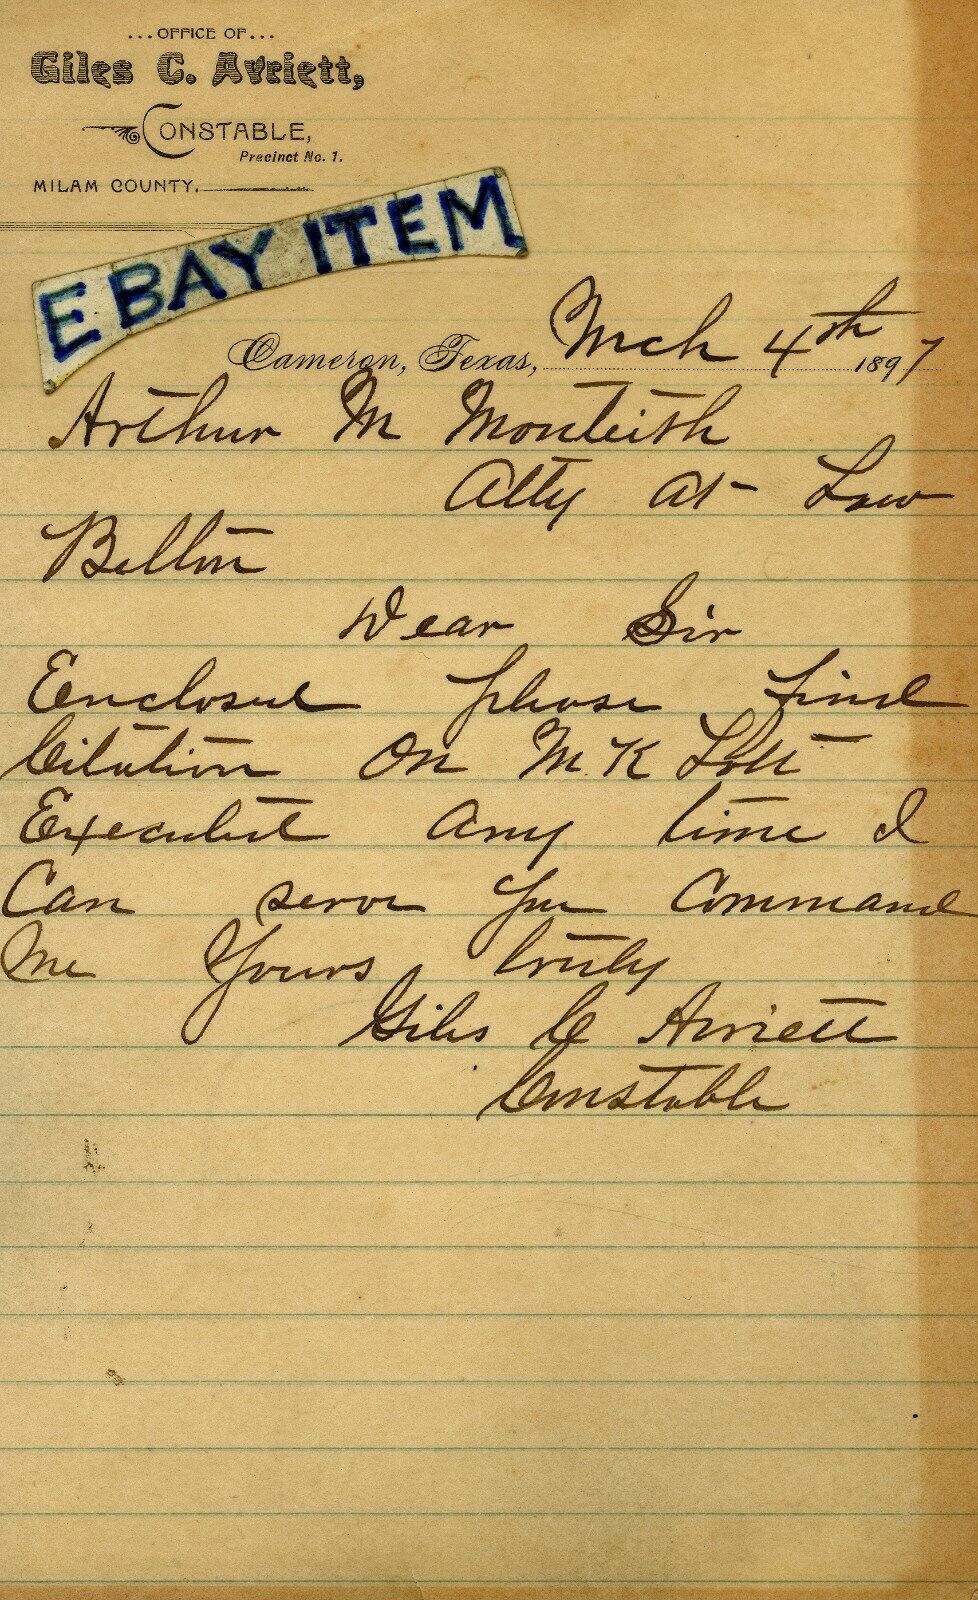 ...OFFICE OF...
Giles C. Avriett,
CONSTABLE,
Precinct No. 1.
MILAM COUNTY.
EBAY ITEM
Cameron, Texas, Mch 4th 1897
Arthur M Monteith
Atty at Law
Belton
Dear Sir
Enclosed please find
Citation on M. K Lott
Executed any time I
Can serve you Command
Me Yours truly
Giles C Avriett
Constable